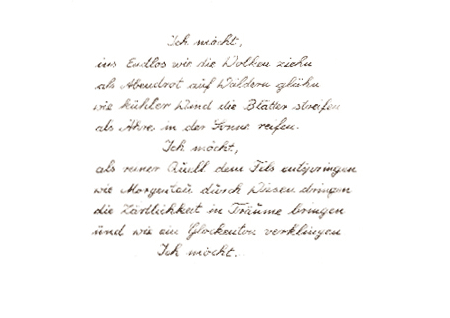 Ich möcht,
ins Endlos wie die Wolken ziehn
als Abendrot auf Wäldern glühn
wie kühler Wind die Blätter streifen
als Ähre in der Sonne reifen.
Ich möcht,
als reiner Quell dem Fels entspringen
wie Morgentau durch Wiesen dringen
die Zärtlichkeit in Träume bringen
und wie ein Glockenton verklingen
Ich möcht.